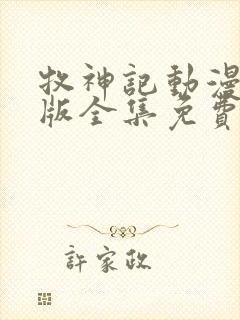 牧神記動漫
版全集免費
許家政